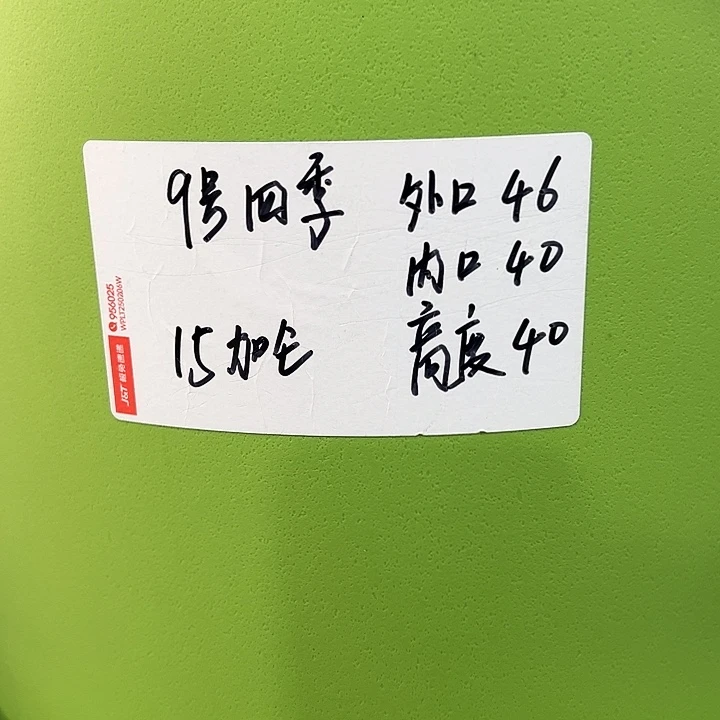 9号四季 外口 46
内口 40
15加仑 高度 40
J&T 极兔速递
956025
WPLTZ50206W